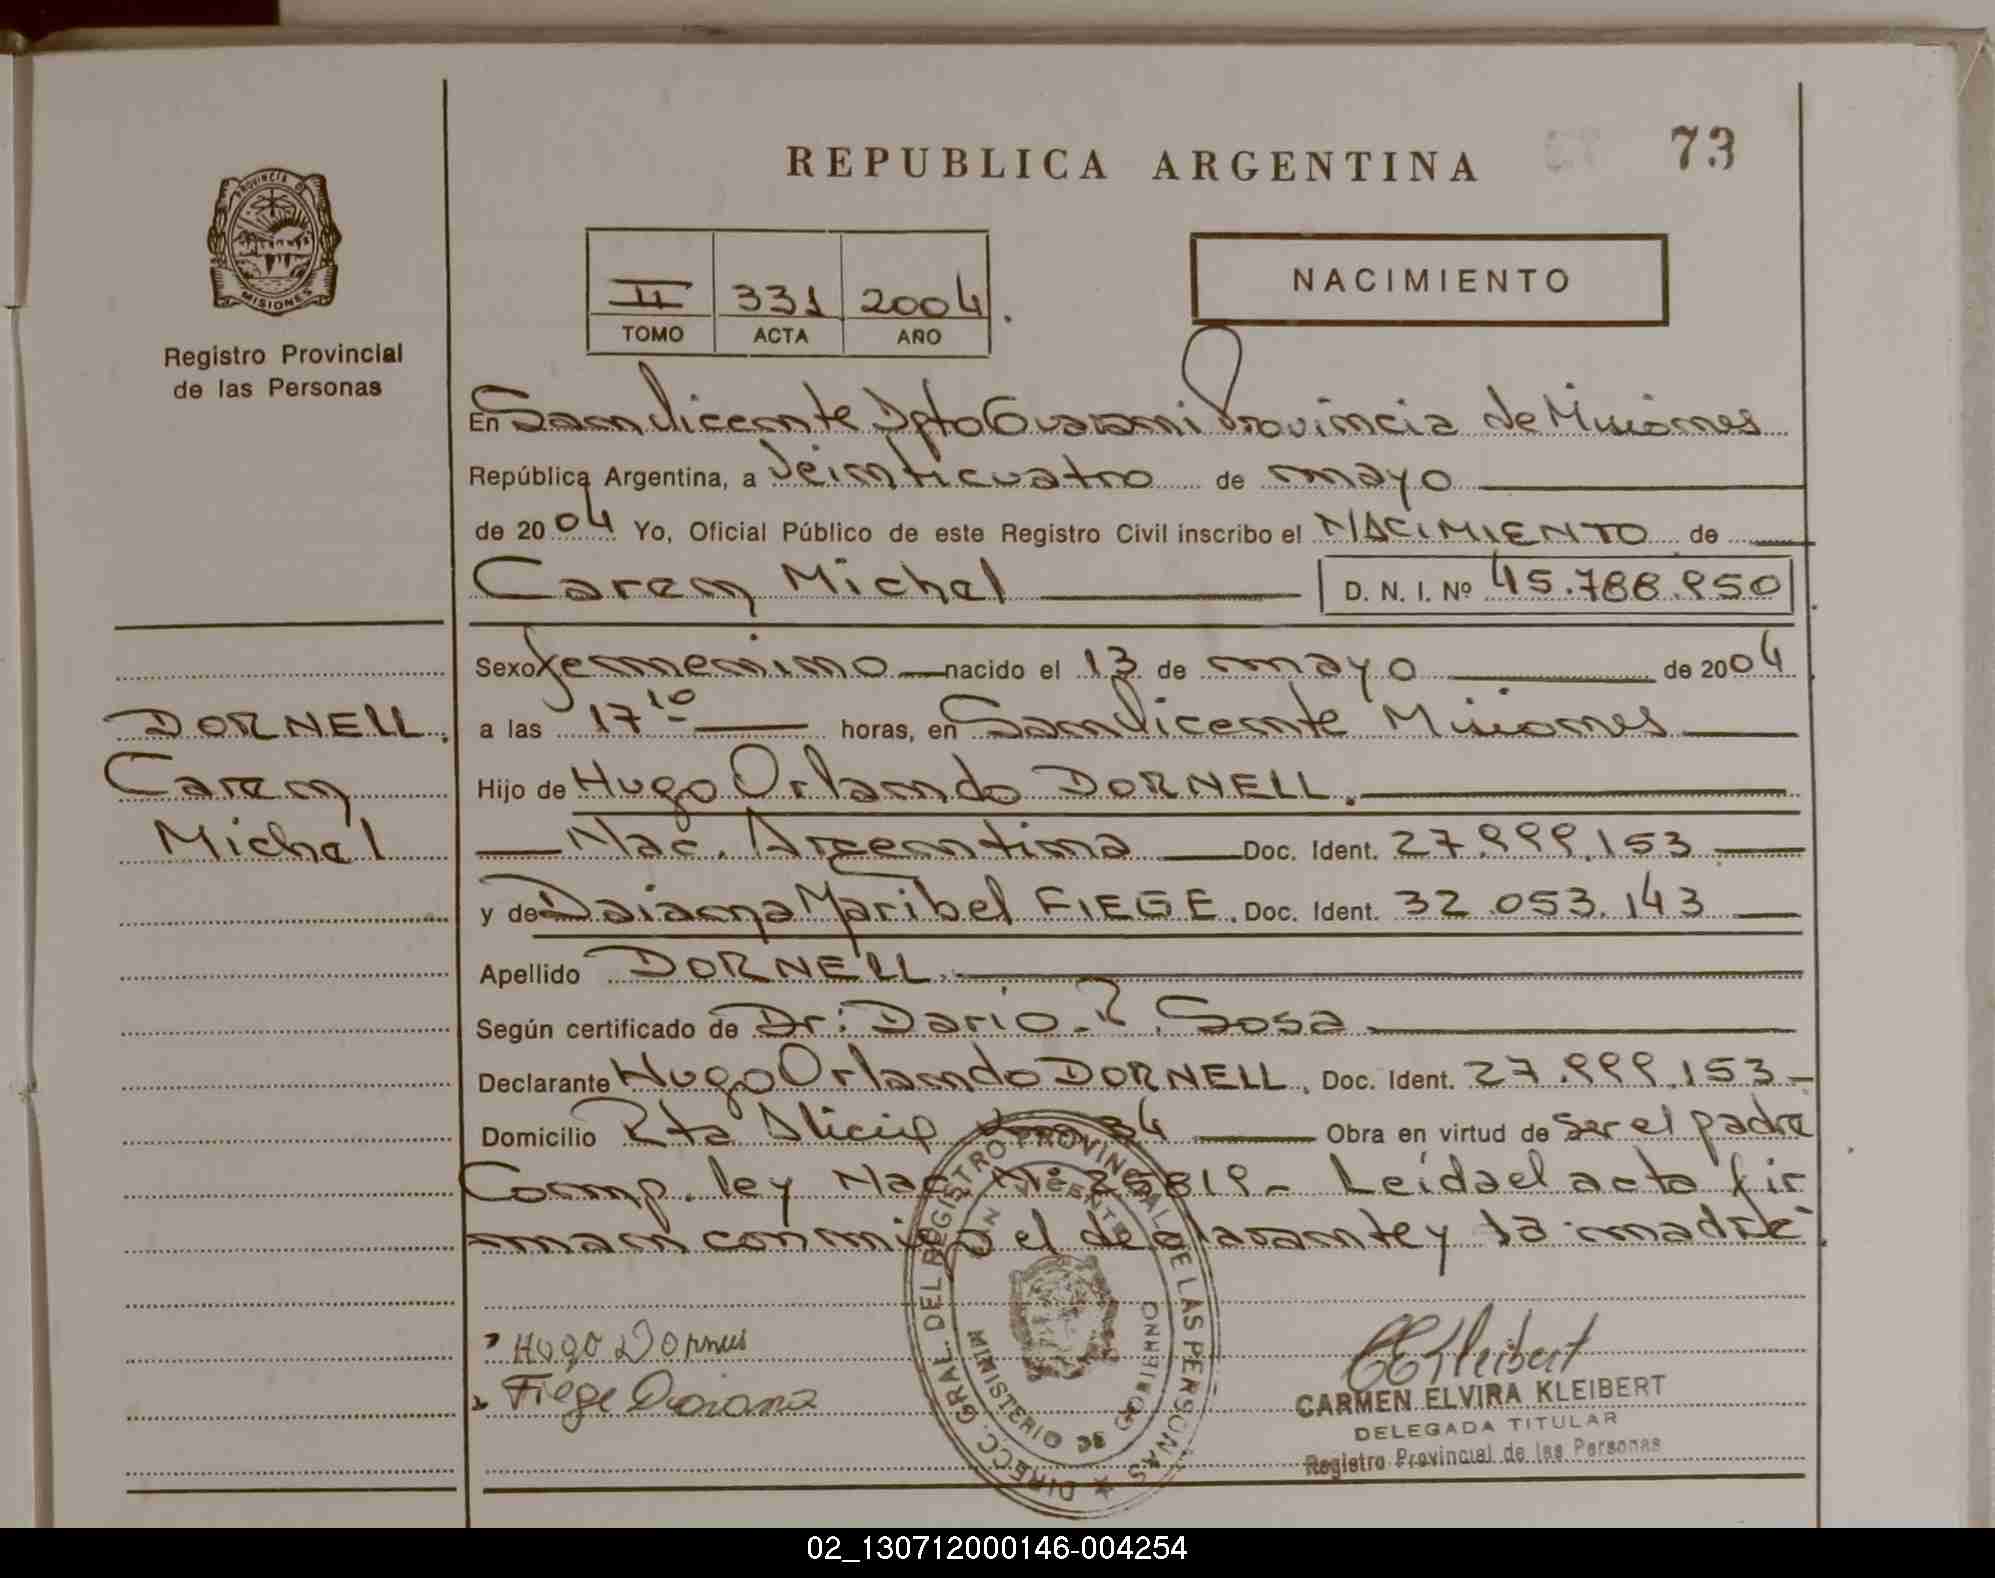 REPUBLICA ARGENTINA
73
PROVINCIA DE
MISIONES
Registro Provincial
de las Personas
II 331 2004
TOMO ACTA AÑO
NACIMIENTO
En San Vicente Dpto Guarani Provincia de Misiones
República Argentina, a Veinticuatro de mayo
de 2004 Yo, Oficial Público de este Registro Civil inscribo el NACIMIENTO de
Caren Michel D. N. I. Nº 45.788.950
Sexo femenino nacido el 13 de mayo de 2004
a las 17 10 horas, en San Vicente Misiones
Hijo de Hugo Orlando DORNELL.
Nac. Argentina Doc. Ident. 27.999.153
y de Daiana Maribel FIEGE. Doc. Ident. 32.053.143
Apellido DORNELL.
Según certificado de Dr: Dario R. Sosa
Declarante Hugo Orlando DORNELL. Doc. Ident. 27.999.153
Domicilio Pto 34 Obra en virtud de ser el padre
Comp. ley Nac Nº 25819 - Leída el acta fir
man conmigo el declarante y la madre
DORNELL.
Caren
Michel
Hugo
Fiege Daiana
DIRECC. GRAL. DEL REGISTRO PROVINCIAL DE LAS PERSONAS
SAN VICENTE
MINISTERIO DE GOBIERNO
CEKleibert
CARMEN ELVIRA KLEIBERT
DELEGADA TITULAR
Registro Provincial de las Personas
02_130712000146-004254